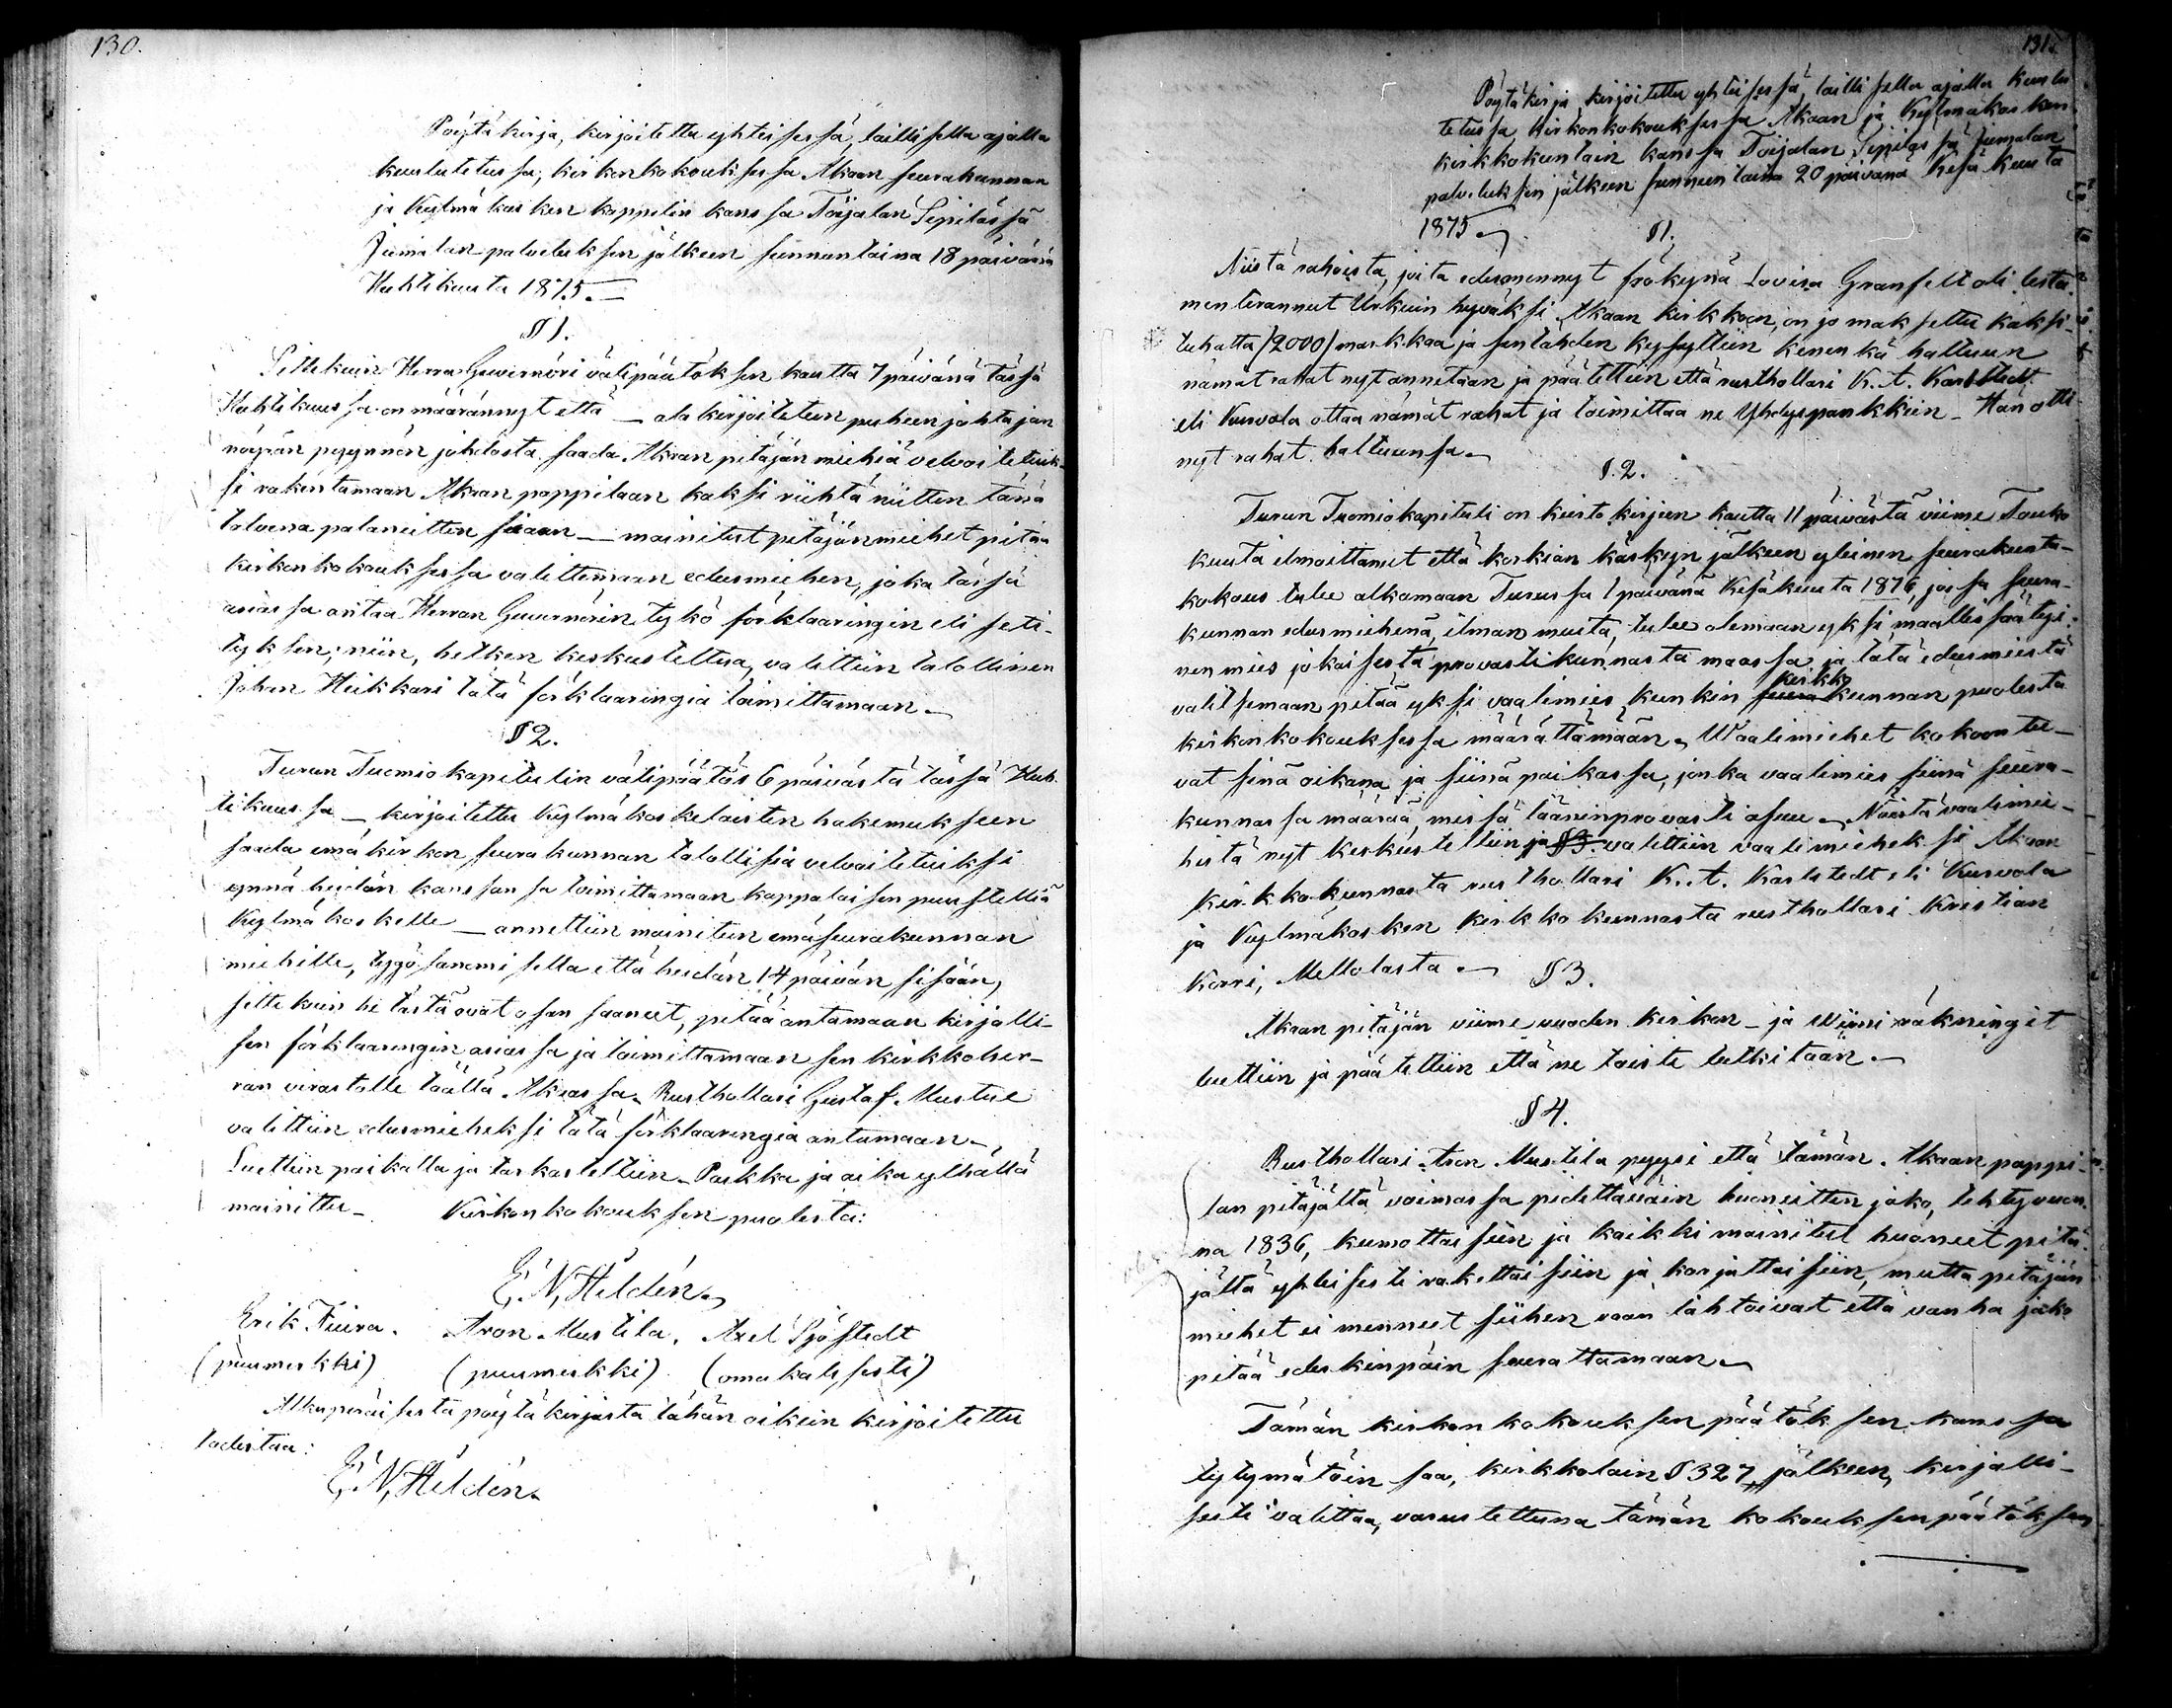 130.
Pöytäkirja, kirjoitettu yhteisessä, laillisella ajalla
kuulutetussa, kirkonkokouksessa Akaan seurakunnan
ja Kylmäkosken kappelin kanssa Toijalan Sepilässä
Jumalan palveluksen jälkeen sunnuntaina 18 päivänä
Huhtikuuta 1875.
§ 1.
Sittekuin Herra Guvernöri välipäätöksen kautta 7 päivänä tässä
Huhtikuussa on määrännyt että – alakirjoitetun puheenjohtajan
nöyrän pyynnön johdosta saada Akaan pitäjän miehiä velvoitetuik-
si rakentamaan Akaan pappilaan kaksi riihtä niitten tänä
talvena palaneitten siaan – mainitut pitäjänmiehet pitää
kirkonkokouksessa valittemaan edusmiehen, joka tässä
asiassa antaa Herran Guvernörin tykö förklaaringin eli seli-
tyksen; niin, hetken keskusteltua, valittiin talollinen
Johan Heikkari tätä förklaaringia toimittamaan.
§ 2.
Turun Tuomiokapitulin välipäätös 6 päivästä tässä Huh-
tikuussa –, kirjoitettu Kylmäkoskelaisten hakemukseen
saada emäkirkon seurakunnan talollisia velvoitetuiksi
ynnä heidän kanssansa toimittamaan kappalaisen puustellia
Kylmäkoskelle – annettiin mainitun emäseurakunnan
miehille, tygösanomisella että heidän 14 päivän sisään,
sittekuin he tästä ovat osan saaneet, pitää antamaan kirjalli-
sen förklaaringin asiassa ja toimittamaan sen kirkkoher-
ran virastolle täällä Akaassa. Rusthollari Gustaf Mustue
valittiin edusmieheksi tätä förklaaringia antamaan.
Luettiin paikalla ja tarkastettiin. Paikka ja aika ylhällä
mainittu. Kirkonkokouksen puolesta:
E. N. Hildén.
Erik Fiura. Aron Mustila. Axel Sjöstedt
(puumerkki) (puumerkki) (omakätisesti)
Alkuperäisestä pöytäkirjasta tähän oikein kirjoitettu
todistaa:
E. N. Hildén.
131.
Pöytäkirja, kirjoitettu yhteisessä, laillisella ajalla kuulu-
tetussa, kirkonkokouksessa Akaan ja Kylmäkosken
kirkkokuntain kanssa Toijalan Sepilässä Jumalan
palveluksen jälkeen sunnuntaina 20 päivänä Kesäkuuta
1875.
§ 1.
Niistä rahoista, joita edesmennyt frökynä Lovisa Granfelt oli testa-
menterannut Urkuin hyväksi Akaan kirkkoon, on jo maksettu kaksi-
tuhatta /2000/ markkaa ja sentähden kysyttiin kenenkä haltuun
nämät rahat nyt annetaan ja päätettiin että rusthollari K. A. Karlstedt
eli Kurvola ottaa nämät rahat ja toimittaa ne Yhdyspankkiin. Hän otti
nyt rahat haltuunsa.
§. 2.
Turun Tuomiokapituli on kiertokirjeen kautta 11 päivästä viime Touko
kuuta ilmoittanut että korkian käskyn jälkeen yleinen seurakunta-
kokous tulee alkamaan Turussa 1 päivänä Kesäkuuta 1876, jossa seura-
kunnan edusmiehenä, ilman muita, tulee olemaan yksi maallissäätyi-
nen mies jokaisesta provastikunnasta maassa, ja tätä edusmiestä
kirkko
valitsemaan pitää yksi vaalimies kunkin seurakunnan puolesta
kirkonkokouksessa määrättämään. Waalimiehet kokoontu-
vat sinä aikana ja siinä paikassa, jonka vaalimies siinä seura-
kunnassa määrää, missä lääninprovasti asuu. Näistä vaalimie-
histä nyt keskusteltiin ja § 3. valittiin vaalimieheksi Akaan
kirkkokunnasta rusthollari K. A. Karlstedt eli Kurvola
ja Kylmäkosken kirkkokunnasta rusthollari Kristian
Korri, Mellolasta.
§ 3.
Akaan pitäjän viime vuoden kirkon- ja Wiini räkningit
luettiin ja päätettiin että ne toiste tutkitaan.
§ 4.
Rusthollari Aron Mustila pyysi että tämän Akaan pappi-
lan pitäjältä voimassa pidettäväin huoneitten jako, tehty vuon-
na 1836, kumottaisiin ja kaikki mainitut huoneet pitä-
jältä yhteisesti rakettaisiin ja korjattaisiin, mutta pitäjän
miehet ei menneet siihen vaan tahtoivat että vanha jako
pitää edeskinpäin seurattamaan.
Tämän kirkonkokouksen päätöksen kanssa
tytymätöin saa, kirkkolain § 327 jälkeen, kirjalli-
sesti valittaa, varustettuna tämän kokouksen päätöksen